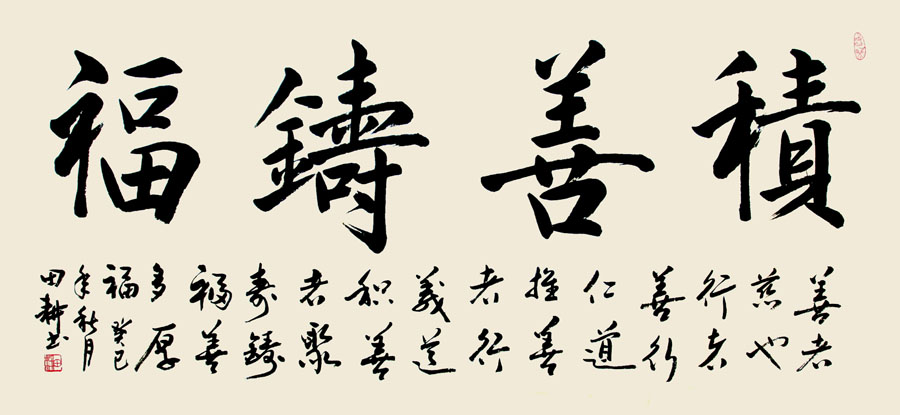 積善鑄福
善者
慈也
行者
善行
仁道
推善
者行
義道
积善
者聚
寿鑄
福善
多厚
福癸巳
年秋月
田耕书